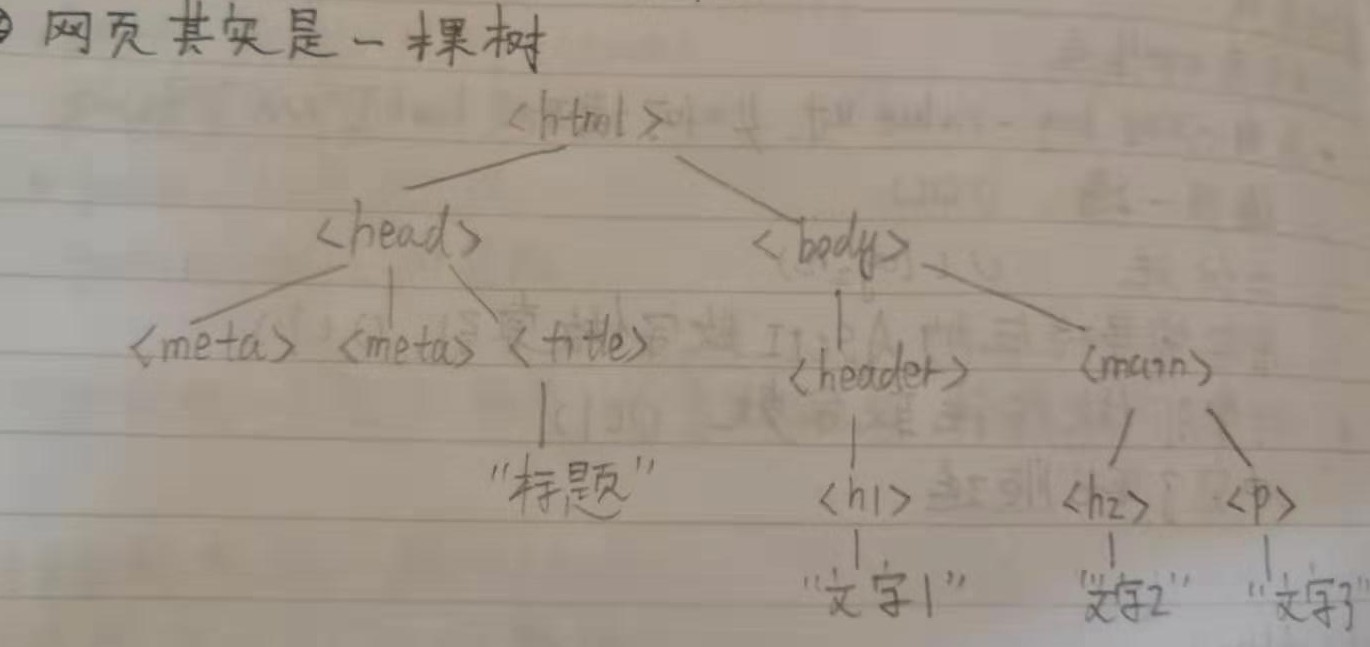 网页其实是一棵树
<html>
<head> <body>
<meta> <meta> <title> <header> <main>
"标题" <h1> <h2> <p>
"文字1" "文字2" "文字3"